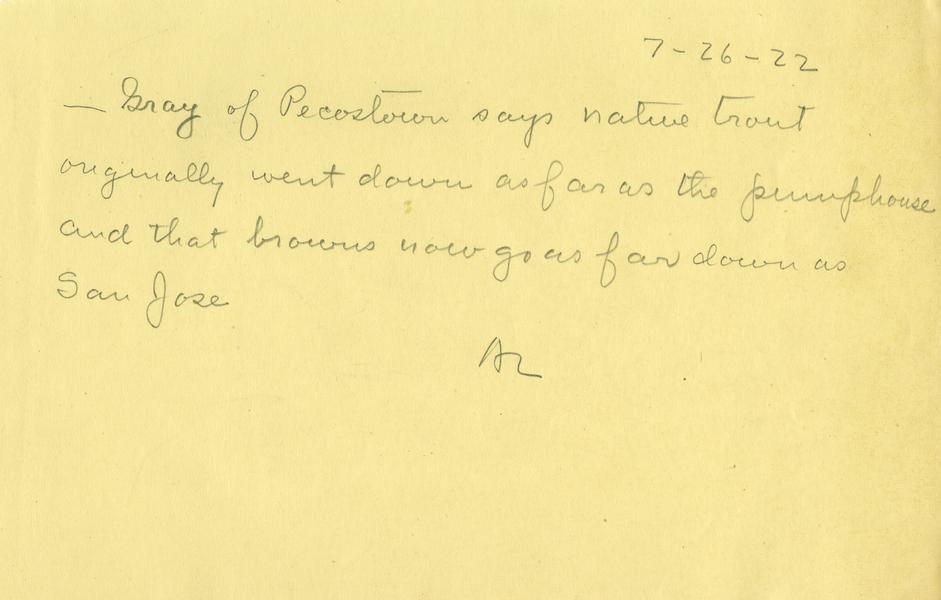 7-26-22
— Gray of Pecostown says native trout
originally went down as far as the pumphouse
and that browns now go as far down as
San Jose
AL